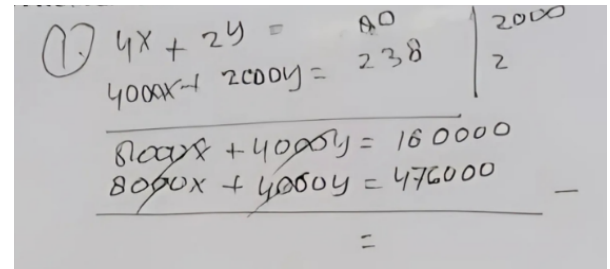 1. 4x + 2y = 80 | 2000
4000x + 2000y = 238 | 2
8000x + 4000y = 160000
8000x + 4000y = 476000 -
=